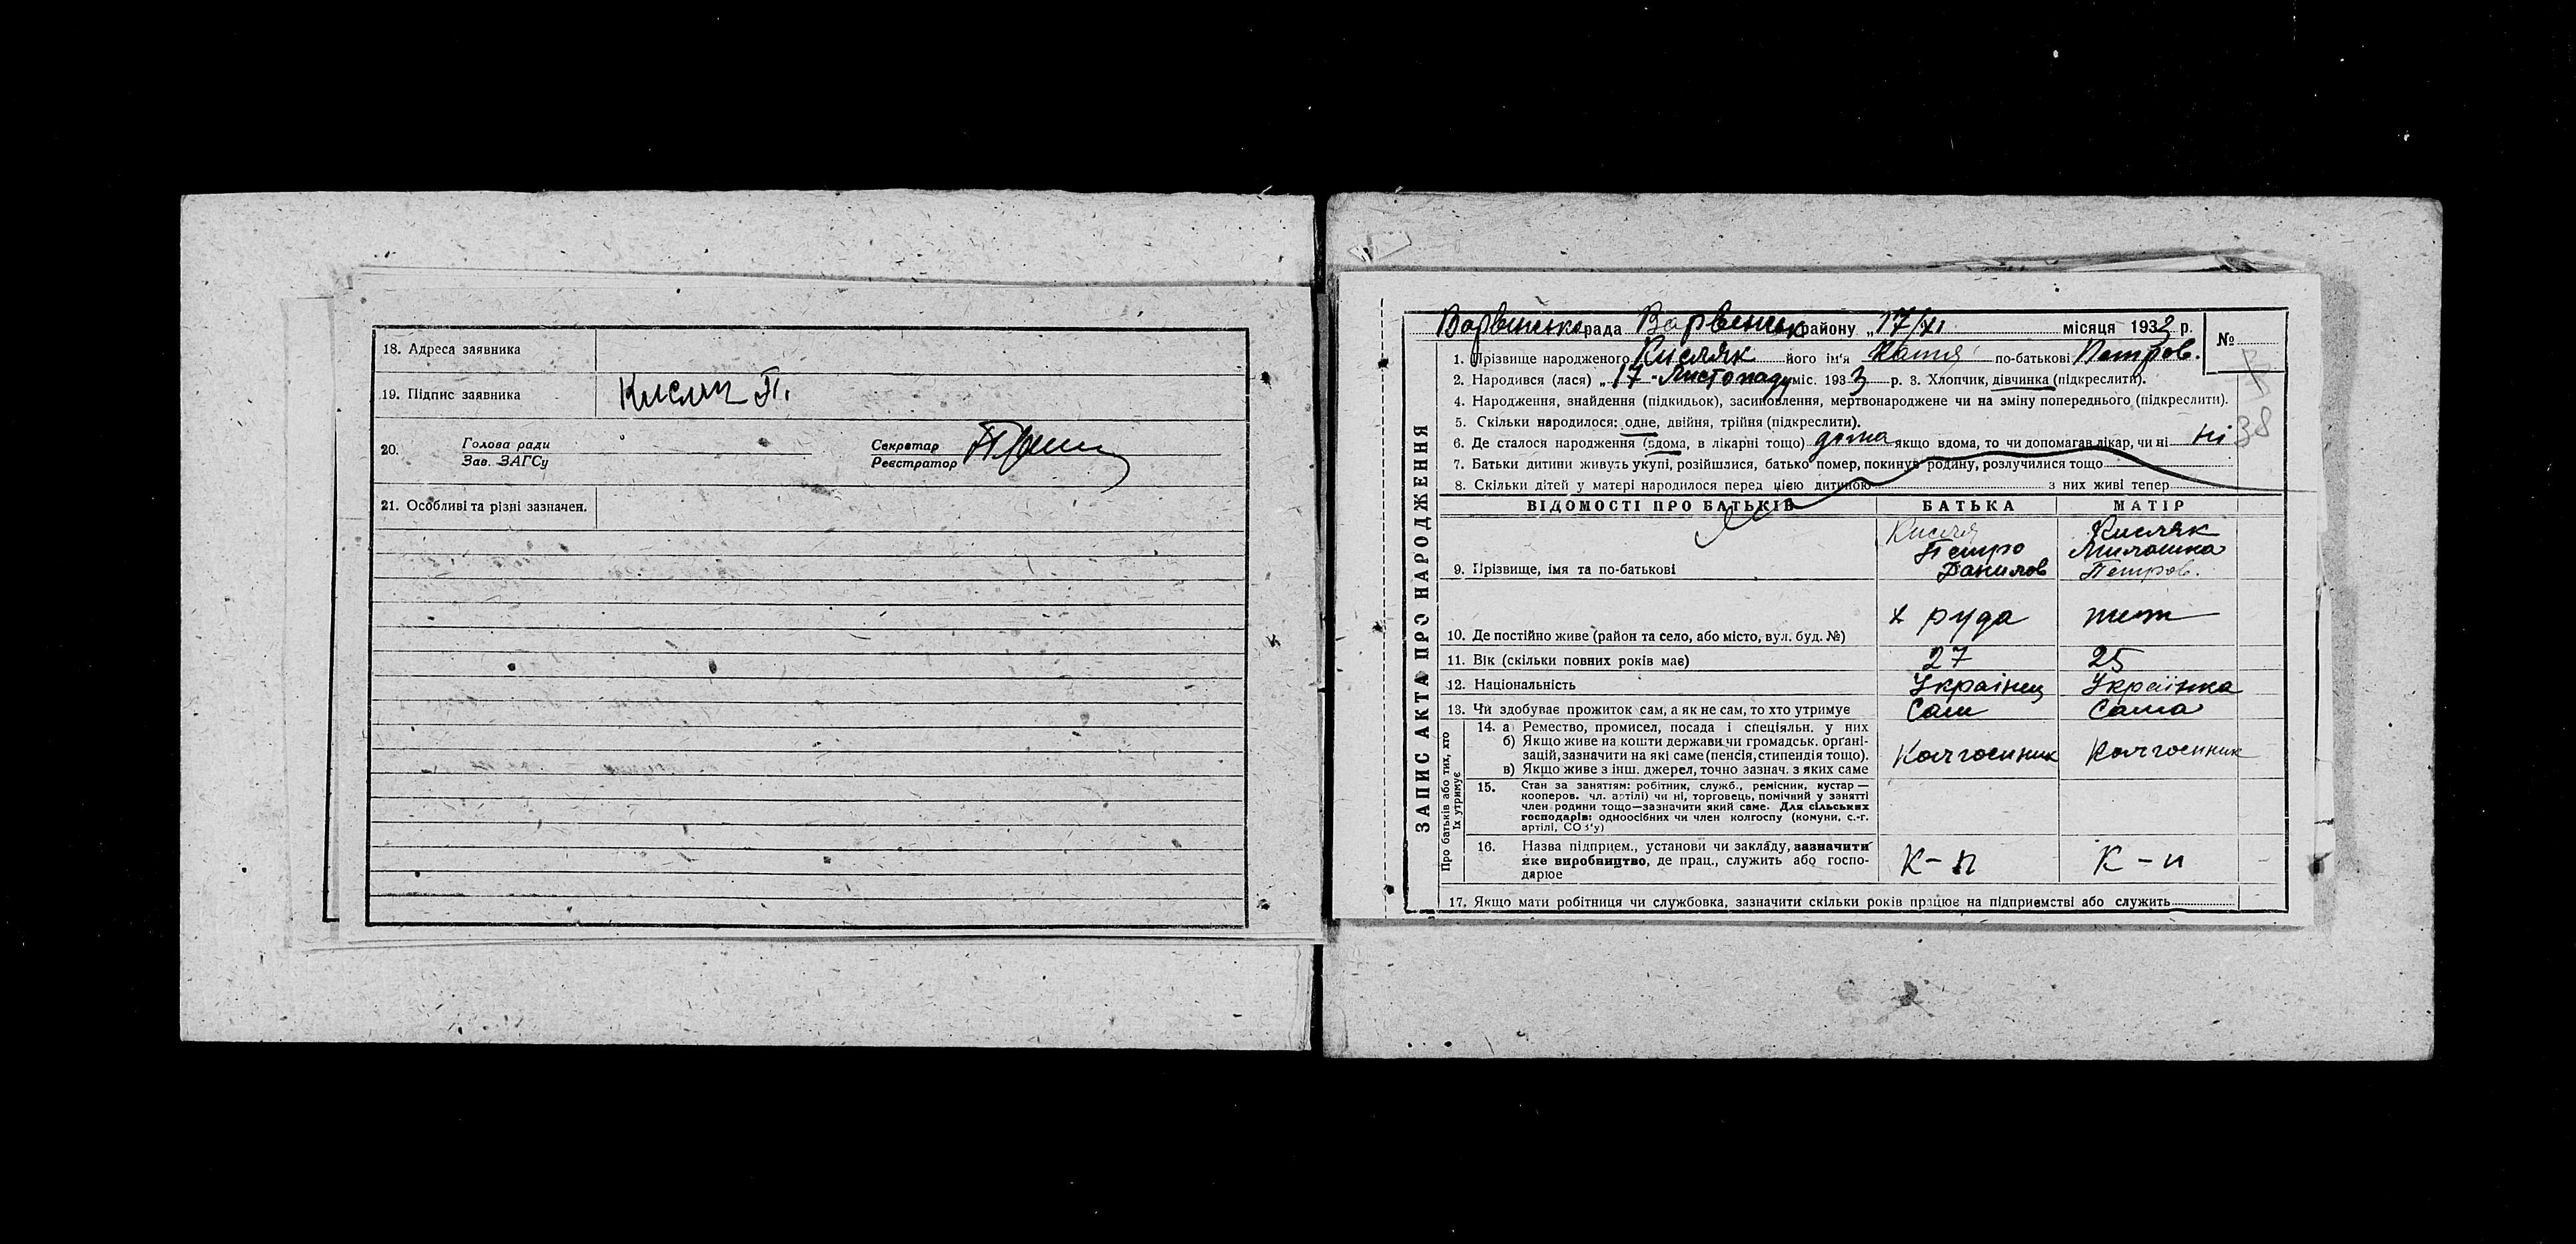 18. Адреса заявника
19. Підпис заявника Кисляк П.
20. Голова ради
Зав. ЗАГСу
Секретар
Реєстратор
21. Особливі та різні зазначен.
Варвинсько рада Варвинськ району „ 17/XI місяця 1933 р. №
1. Прізвище народженого Кисляк його ім'я Катя по-батькові Петров.
2. Народився (лася) „ 17 " Листопаду міс. 1933 р. 3. Хлопчик, дівчинка (підкреслити).
4. Народження, знайдення (підкидьок), засиновлення, мертвонароджене чи на зміну попереднього (підкреслити).
5. Скільки народилося: одне, двійня, трійня (підкреслити).
38
6. Де сталося народження (вдома, в лікарні тощо) дома якщо вдома, то чи допомагав лікар, чи ні ні
7. Батьки дитини живуть укупі, розійшлися, батько помер, покинув родину, розлучилися тощо
8. Скільки дітей у матері народилося перед цією дитиною з них живі тепер
ЗАПИС АКТА ПРО НАРОДЖЕННЯ
ВІДОМОСТІ ПРО БАТЬКІВ БАТЬКА МАТІР
9. Прізвище, імя та по-батькові
Кисля
Петро
Данилов
Кисляк
Милашка
Петров.
10. Де постійно живе (район та село, або місто, вул. буд. №) х руда теж
11. Вік (скільки повних років має) 27 25
12. Національність Українец Українка
13. Чи здобуває прожиток сам, а як не сам, то хто утримує Сам Сама
Про батьків або тих, хто їх утримує
14. а) Ремество, промисел, посада і спеціяльн. у них
б) Якщо живе на кошти держави чи громадськ. органі-
зацій, зазначити на які саме (пенсія, стипендія тощо).
в) Якщо живе з інш. джерел, точно зазнач. з яких саме
Колгоспник Колгоспник
15. Стан за заняттям: робітник, служб., ремісник, кустар —
кооперов. чл. артілі) чи ні, торговець, помічний у занятті
член родини тощо—зазначити який саме. Для сільських
господарів: одноосібних чи член колгоспу (комуни, с.-г.
артілі, СОЗ'у)
16. Назва підприєм., установи чи закладу, зазначити
яке виробництво, де прац., служить або госпо-
дарює
К-п К-п
17. Якщо мати робітниця чи службовка, зазначити скільки років працює на підприємстві або служить